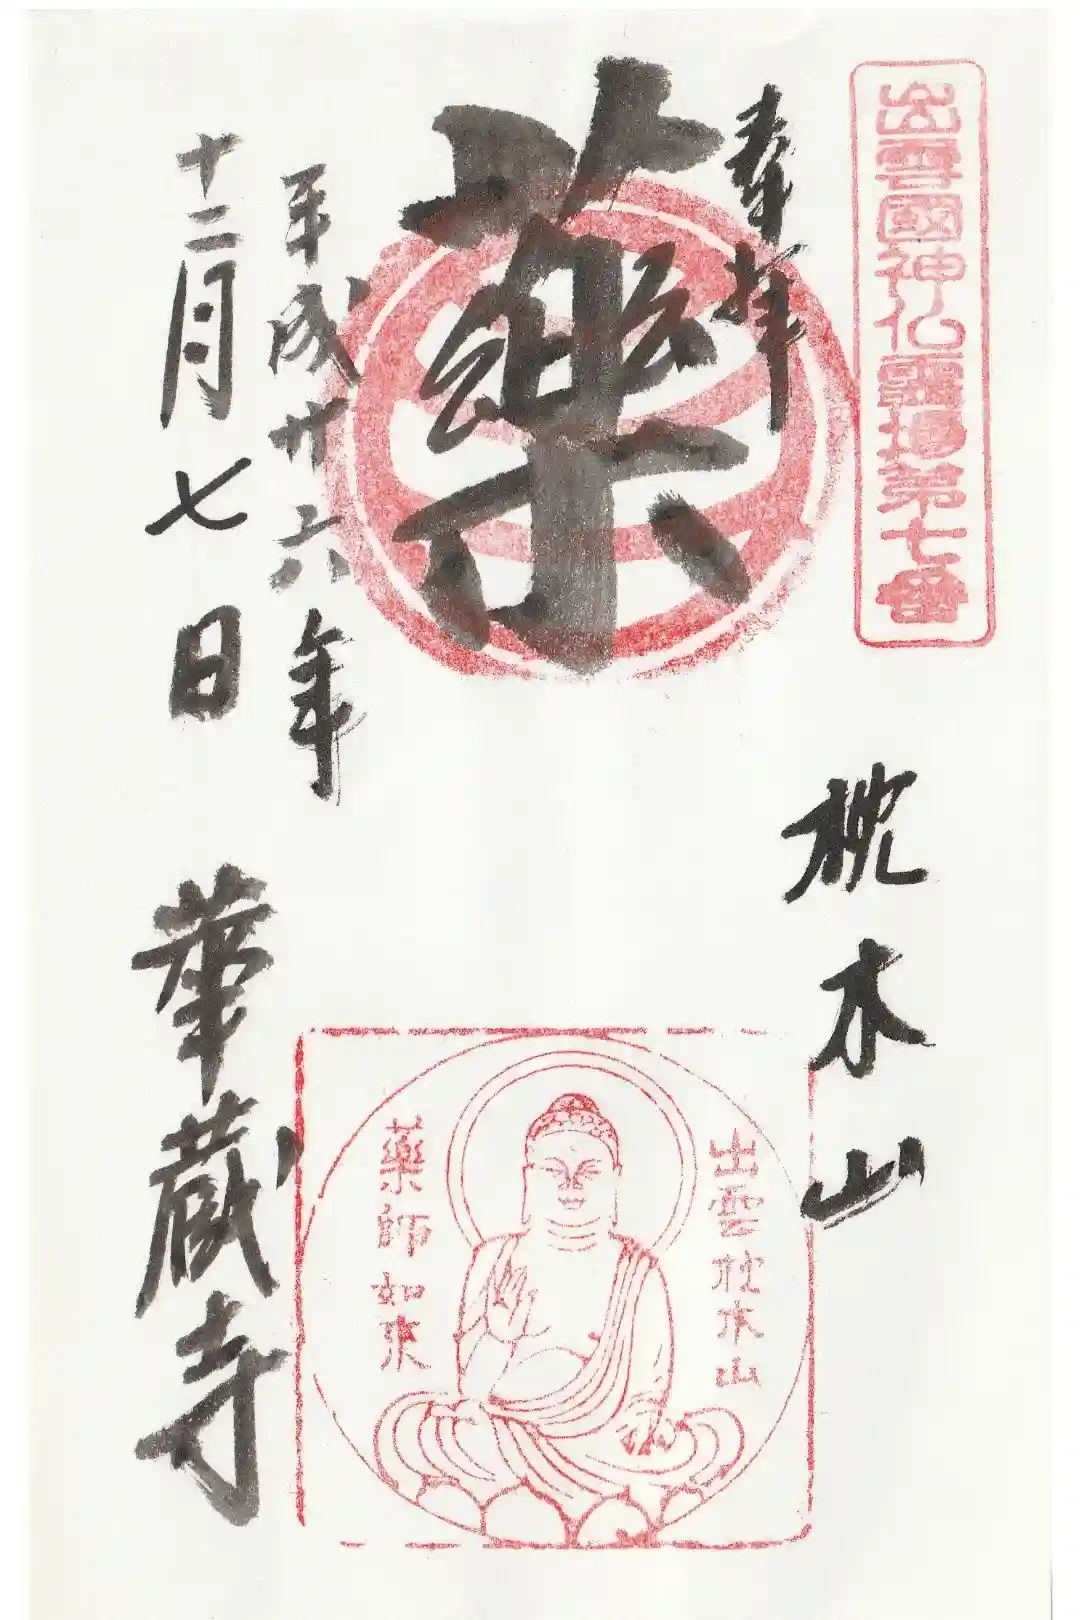 出雲國神仏霊場第七番
奉拝
枕木山
薬
平成廿六年
十二月七日
華蔵寺
出雲枕木山
薬師如来